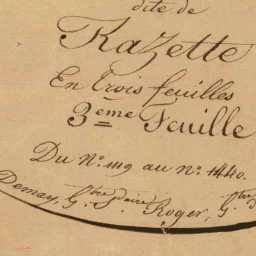 dite de
Kazette
En trois feuilles
3ème Feuille
Du No. 1119 au no. 1440.
Demay, Gtre Sdaire Roger, Gtre